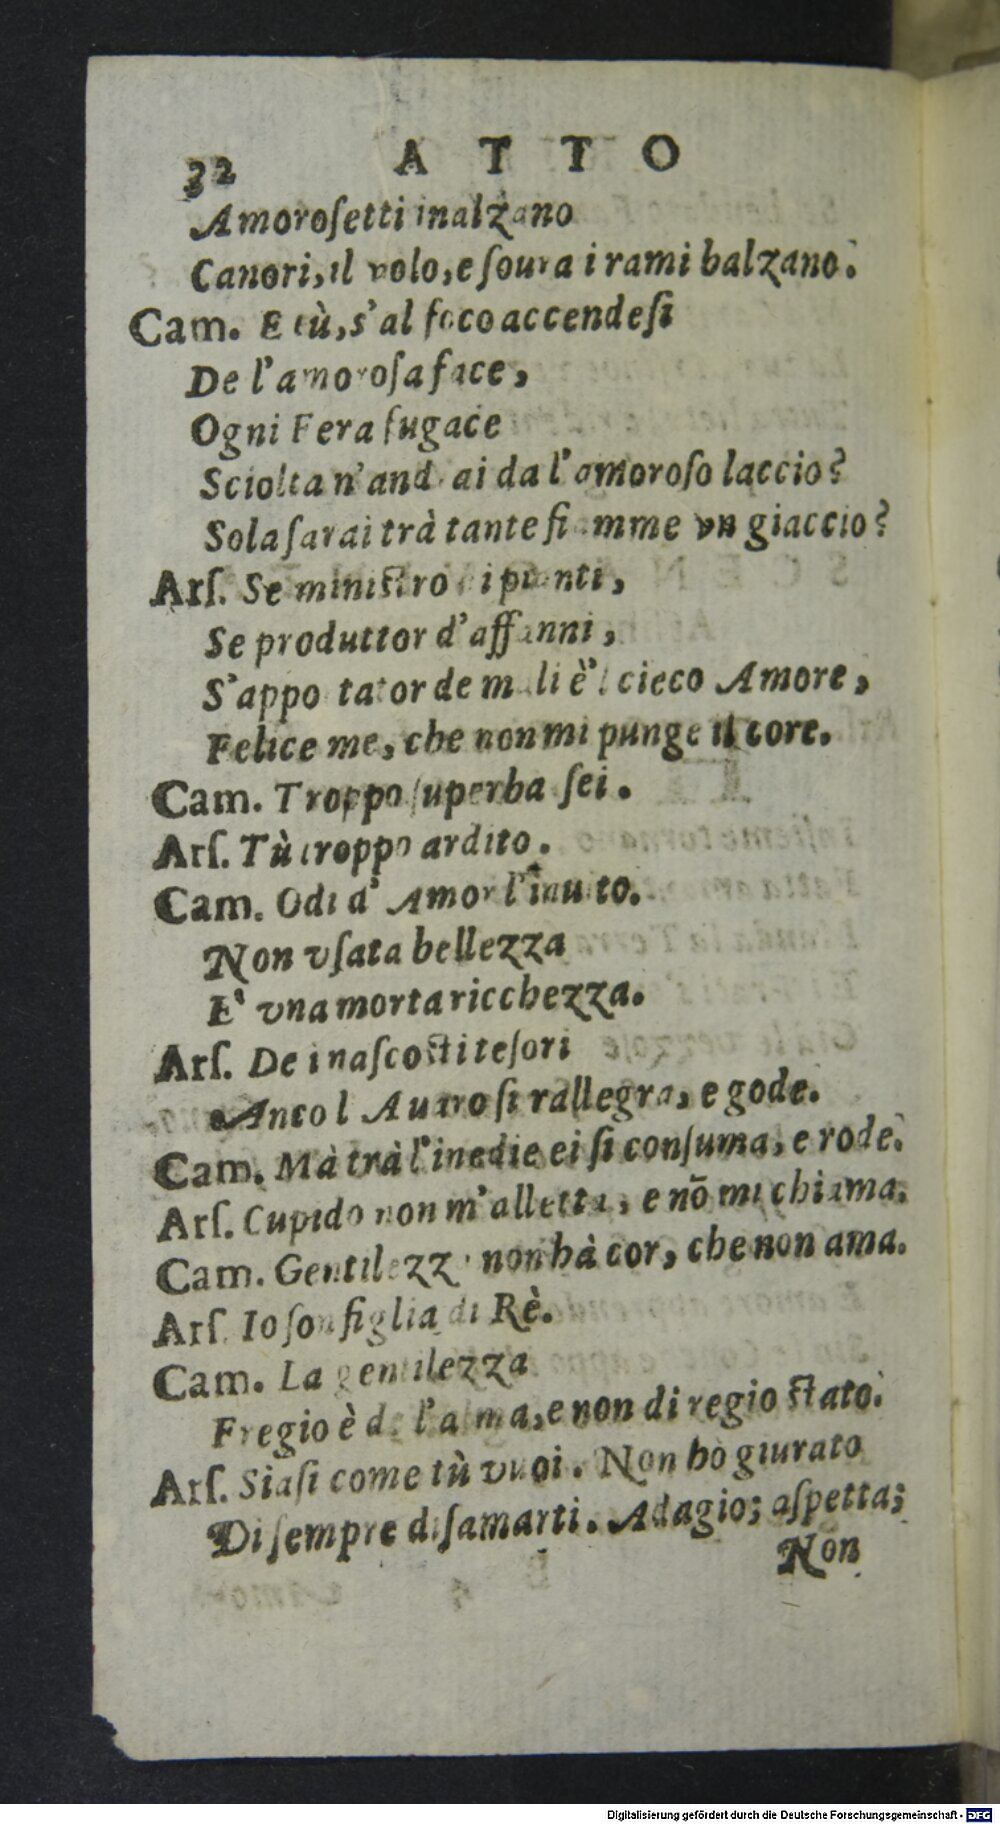 32 ATTO
Amoroſetti inalzano
Canori, il volo, e ſoura i rami balzano.
Cam. E tù, s'al foco accendeſi
De l'amoroſa face,
Ogni Fera fugace
Sciolta n'andrai da l'amoroſo laccio?
Sola ſarai trà tante fiamme vn giaccio?
Arſ. Se miniſtro di pianti,
Se produttor d'affanni,
S'apportator de mali è'l cieco Amore,
Felice me, che non mi punge il core.
Cam. Troppo ſuperba ſei.
Arſ. Tù troppo ardito.
Cam. Odi d' Amor l'inuito.
Non vſata bellezza
E' vna morta ricchezza.
Arſ. De i naſcoſti teſori
Anco l Auaro ſi rallegra, e gode.
Cam. Mà trà l'inedie ei ſi conſuma, e rode.
Arſ. Cupido non m'alletta, e nō mi chiama.
Cam. Gentilezza non hà cor, che non ama.
Arſ. Io ſon figlia di Rè.
Cam. La gentilezza
Fregio è de l'alma, e non di regio ſtato.
Arſ. Siaſi come tù vuoi. Non hò giurato
Di ſempre diſamarti. Adagio; aſpetta;
Non
Digitalisierung gefördert durch die Deutsche Forschungsgemeinschaft - DFG